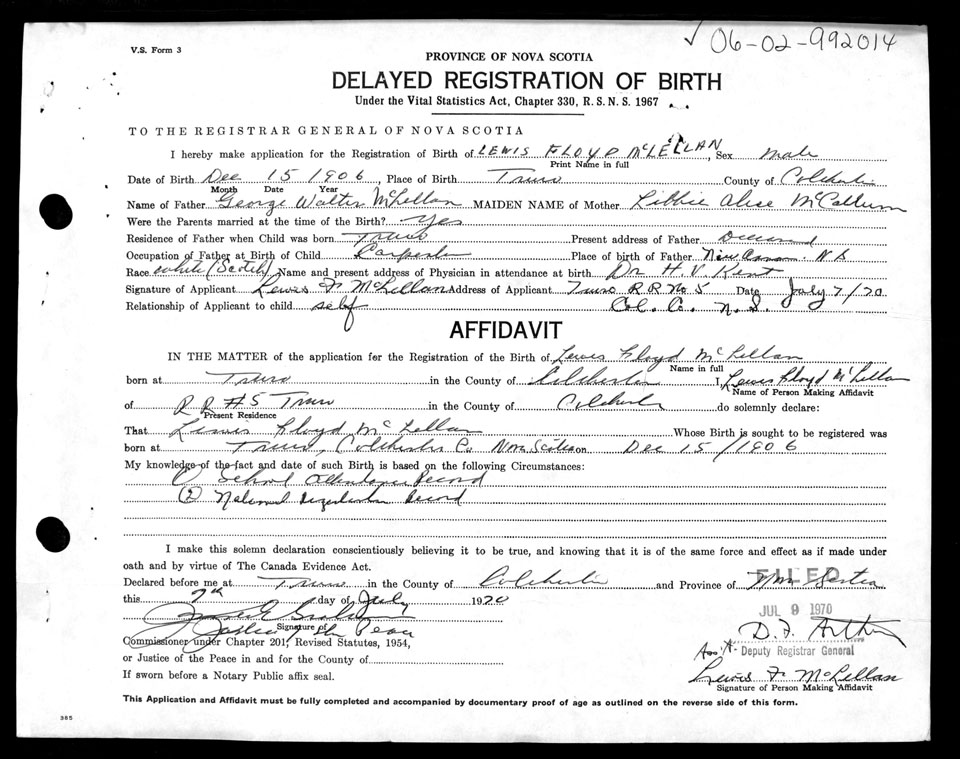 V.S. Form 3
✓ 06-02-992014
PROVINCE OF NOVA SCOTIA
DELAYED REGISTRATION OF BIRTH
Under the Vital Statistics Act, Chapter 330, R. S. N. S. 1967
TO THE REGISTRAR GENERAL OF NOVA SCOTIA
I hereby make application for the Registration of Birth of LEWIS FLOYD McLELLAN, Sex male
Print Name in full
Date of Birth Dec 15 1906, Place of Birth Truro County of Colchester
Month Date Year
Name of Father George Walter McLellan MAIDEN NAME of Mother Libbie Alice McCallum
Were the Parents married at the time of the Birth? Yes
Residence of Father when Child was born Truro Present address of Father Deceased
Occupation of Father at Birth of Child Carpenter Place of birth of Father New Annan N S
Race white (Scotch) Name and present address of Physician in attendance at birth Dr H. V. Kent
Signature of Applicant Lewis F McLellan Address of Applicant Truro R R No 5 Date July 7/70
Relationship of Applicant to child self Col. Co. N. S.
AFFIDAVIT
IN THE MATTER of the application for the Registration of the Birth of Lewis Floyd McLellan
Name in full
born at Truro in the County of Colchester I, Lewis Floyd McLellan
Name of Person Making Affidavit
of R R #5 Truro in the County of Colchester do solemnly declare:
Present Residence
That Lewis Floyd McLellan Whose Birth is sought to be registered was
born at Truro, Colchester Co Nova Scotia on Dec 15/1906
My knowledge of the fact and date of such Birth is based on the following Circumstances:
(1) School Attendance Record
(2) National Registration Record
I make this solemn declaration conscientiously believing it to be true, and knowing that it is of the same force and effect as if made under
oath and by virtue of The Canada Evidence Act.
Declared before me at Truro in the County of Colchester and Province of Nova Scotia
FILED
this 7th day of July 1970
JUL 9 1970
Signature
Justice of the Peace
D. F. Arthur
Commissioner under Chapter 201, Revised Statutes, 1954,
Ass't Deputy Registrar General
or Justice of the Peace in and for the County of
Lewis F McLellan
If sworn before a Notary Public affix seal.
Signature of Person Making Affidavit
This Application and Affidavit must be fully completed and accompanied by documentary proof of age as outlined on the reverse side of this form.
385